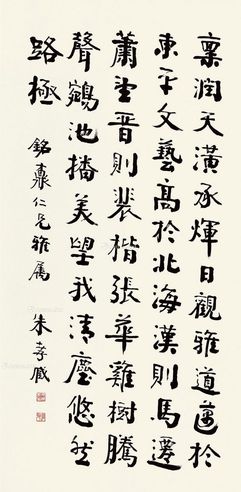 稟潤天潢承煇日觀雅道邁於
東平文藝高於北海漢則馬遷
蕭望晋則裴楷張華雞樹騰
聲鵷池播美望我清塵悠然
路極
銘彝仁兄雅属 朱孝臧